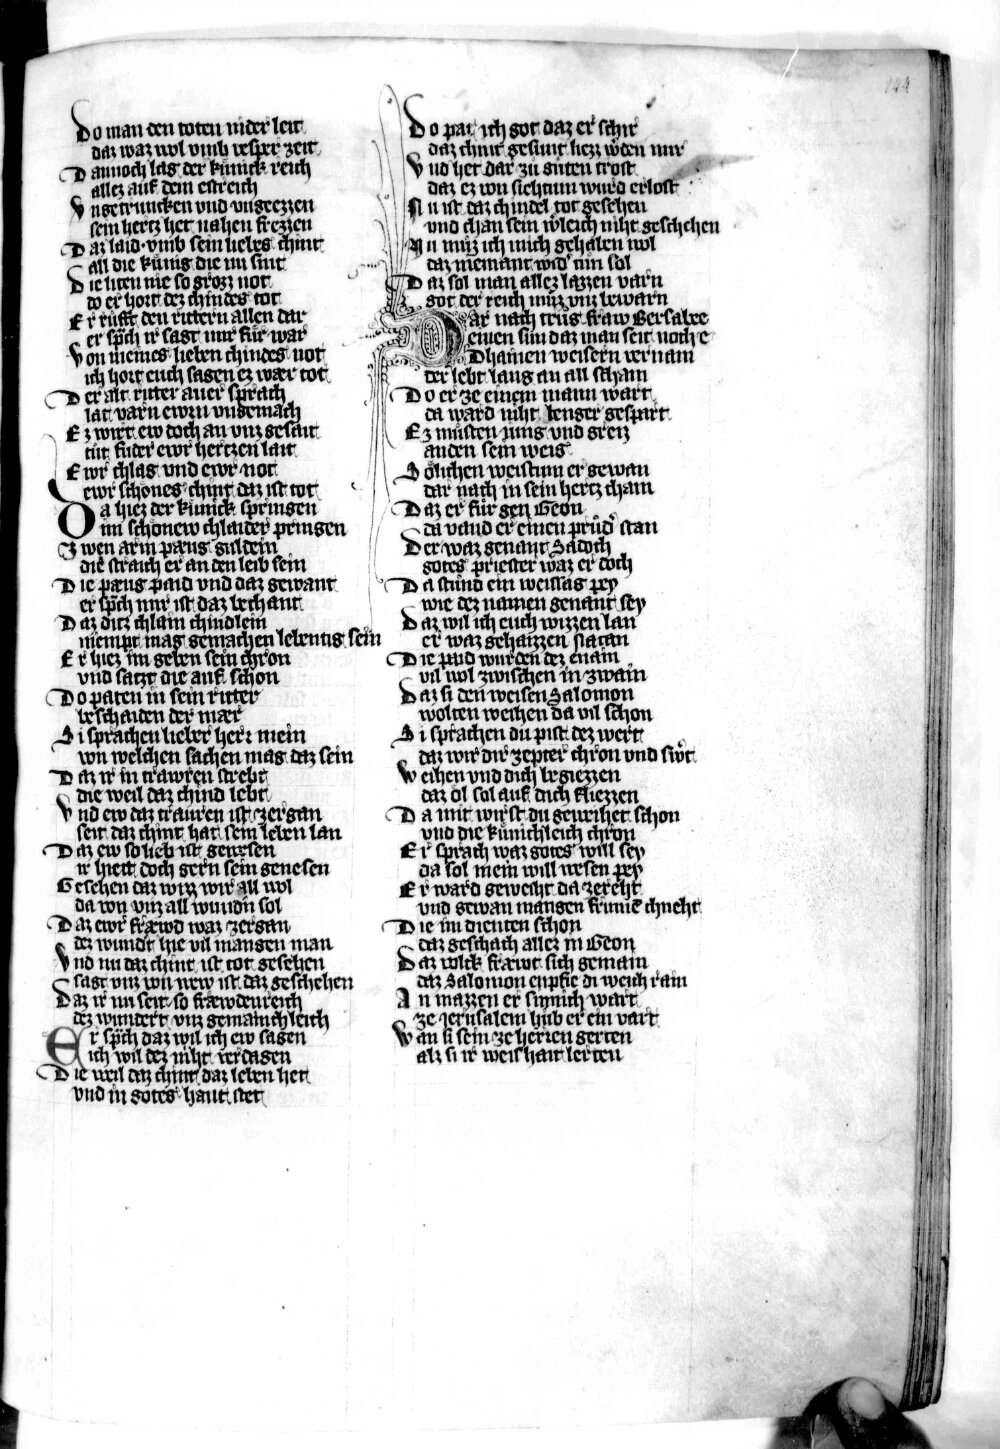 144
Do man den toten nider leit
daz waz wol vmb vesper zeit
Dannoch lag der kunick reich
allez auf dem estreich
Vngetruncken vnd vngeezzen
sein hertz het nahen frezzen
Daz laid vmb sein liebes chint
all die kunig die nu sint
Die liten nie so grozz not
do er hort dez chindes tot
Er rufft den rittern allen dar
er sp̄ch ir sagt mir fur war
Von meines lieben chindes not
ich hort euch sagen ez wær tot
Der alt ritter auer sprach
lat varn ewrn vngemach
Ez wirt ew doch an vnz gesait
tut fuder ewr hertzen lait
Ewr chlag vnd ewr not
ewr schones chint daz ist tot
Da hiez der kunick springen
im schonew chlaider pringen
Zwen arm paug guldein
die straich er an den leib sein
Die paug paid vnd daz gewant
er sp̄ch mir ist daz bechant
Daz ditz chlain chindlein
niempt mag gemachen lebentig sein
Er hiez im geben sein chron
vnd satzt die auf schon
Do paten in sein ritter
beschaiden der mær
Si sprachen lieber herr mein
von welchen sachen mag daz sein
Daz ir in trawren strebt
die weil daz chind lebt
Vnd ew daz trauren ist zergan
seit daz chint hat sein leben lan
Daz ew so lieb ist gewesen
ir hiett doch gern sein genesen
Gesehen daz wizz wir all wol
da von vnz all wundn sol
Daz ewr fræwd waz zergan
dez wundt hie vil mangen man
Vnd nu daz chint ist tot gesehen
sagt vnz von new ist daz geschehen
Daz ir nu seit so fræwdenreich
dez wundert vnz gemainchleich
Er sp̄ch daz wil ich ew sagen
ich wil dez niht verdagen
Die weil daz chint daz leben het
vnd in gotes hant stet
Do pat ich got daz er schir
daz chint gesunt liezz wden mir
Vnd het dar zu guten trost
daz ez von siechtum wurd erlost
Nu ist daz chindel tot gesehen
vnd chan sein wleich niht geschehen
Nu muz ich mich gehaben wol
daz niemant wid tun sol
Daz sol man allez lazzen varn
got der reich muzz vnz bewarn
Dar nach trug fraw Bersabee
einen sun daz man seit noch e
Dhainen weisern vernam
der lebt lang an all scham
Do er ze einem mann wart
da ward niht lenger gespart
Ez musten jung vnd greiz
anden sein weis
Solichen weistum er gewan
dar nach in sein hertz cham
Daz er fur gen Geon
da vand er einen prud stan
Der waz genant Sadoch
gotes priester waz er doch
Da stund ein weissag pey
wie dez namen genant sey
Daz wil ich euch wizzen lan
er waz gehaizzen natan
Die paid wurden dez enain
vil wol zwischen in zwain
Daz si den weisen Salomon
wolten weihen da vil schon
Si sprachen du pist dez wert
daz wir dir zepter chron vnd swt
Weihen vnd dich begiezzen
daz ol sol auf dich fliezzen
Da mit wirst du geweihet schon
vnd die kunichleich chron
Er sprach waz gotes will sey
da sol mein will wesen pey
Er ward geweiht da zereht
vnd gewan mangen frume chneht
Die im dienten schon
daz geschach allez in Geon
Daz volck fræwt sich gemain
daz Salomon enpfie di weich rain
An mazzen er sinnich wart
ze Jerusalem hub er ein vart
Wan si sein ze herren gerten
alz si ir weishait lerten